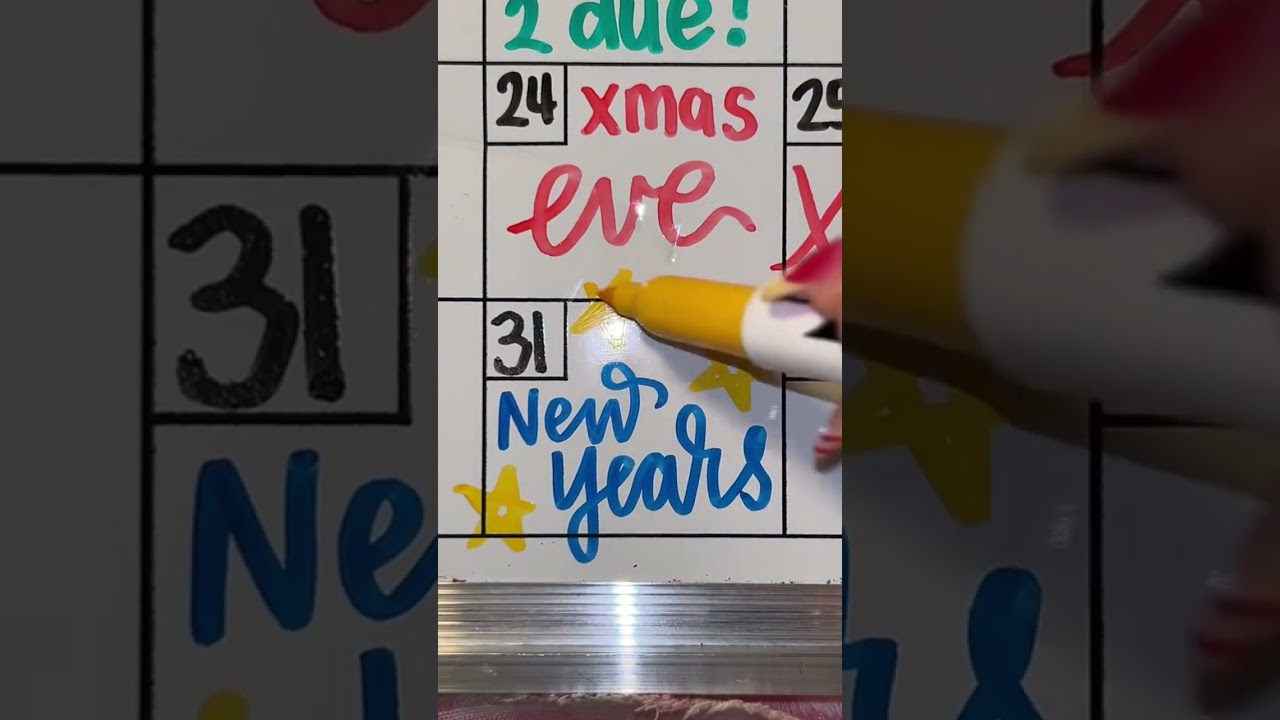 2 due!
24 xmas
eve
31
New
years